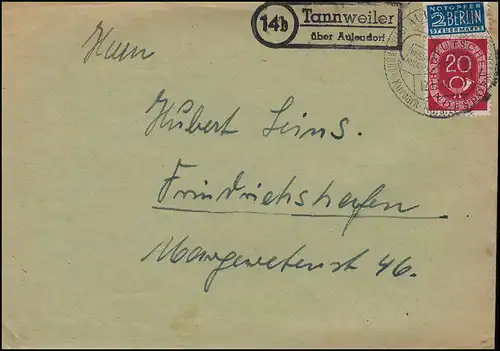 14b
Tannweiler
über Aulendorf
NOTOPFER
2 BERLIN
STEUERMARKE
DEUTSCHE
20
BUNDESPOST
Herrn
Hubert Leins.
Friedrichshafen
Margeretenst 46.